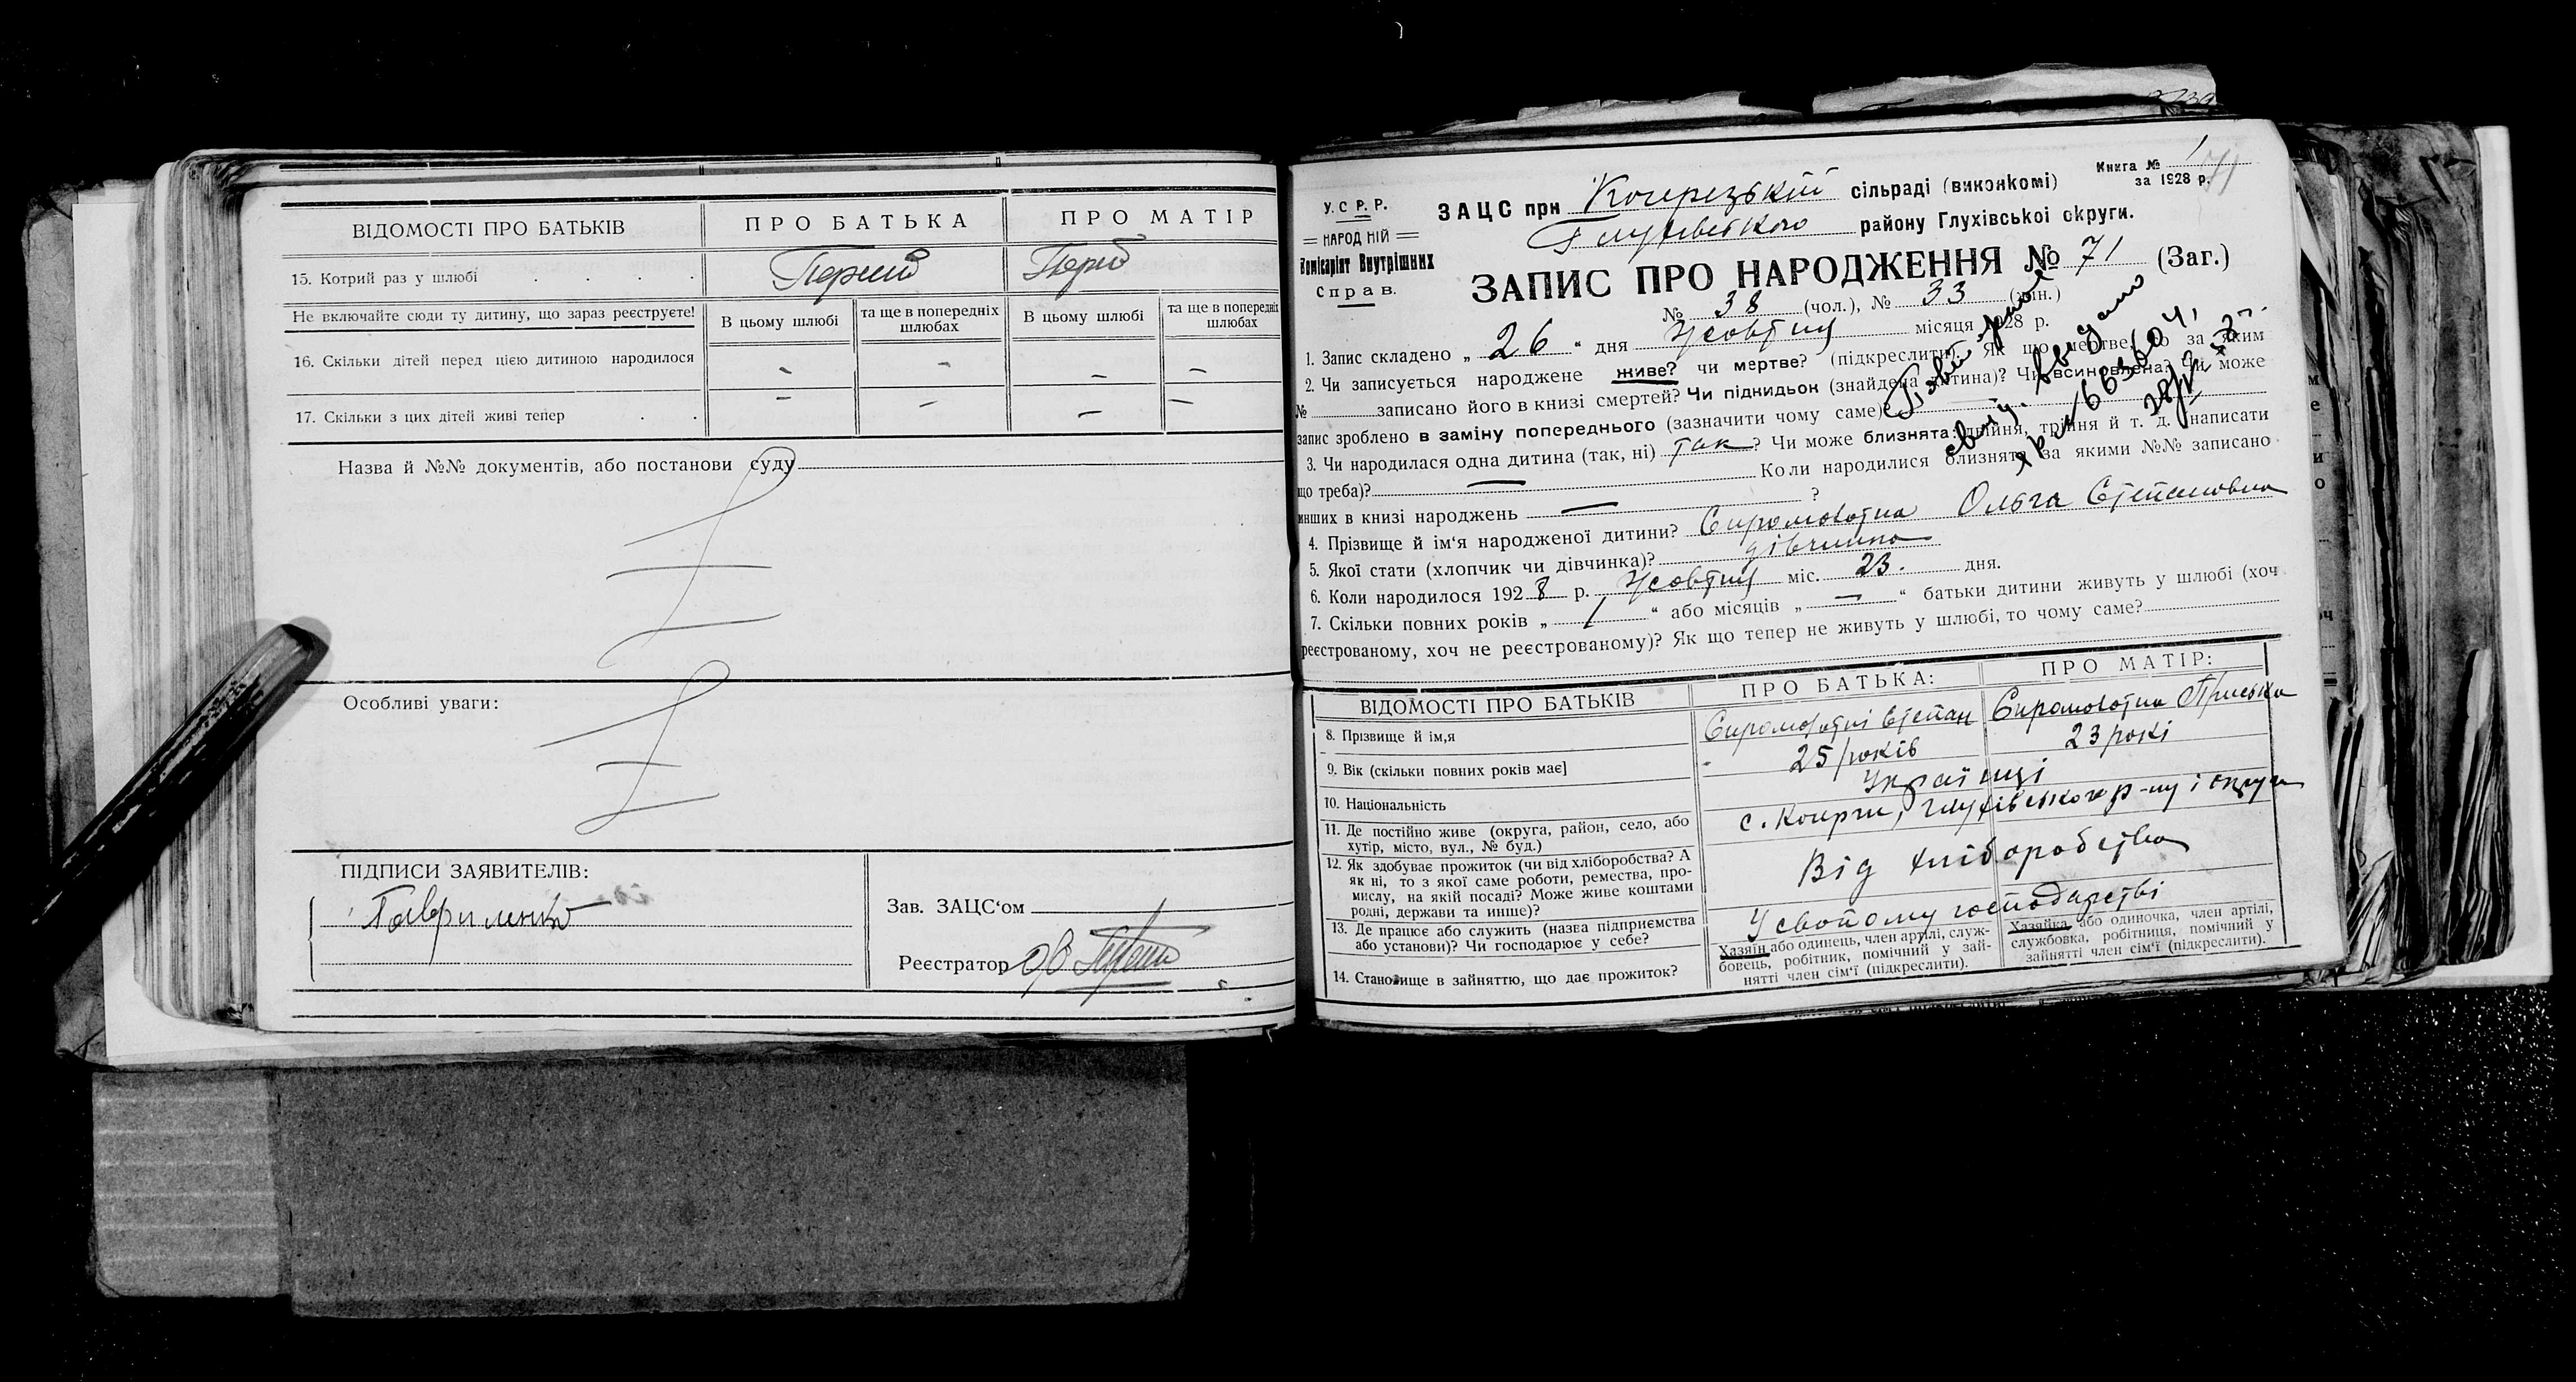 ВІДОМОСТІ ПРО БАТЬКІВ
ПРО БАТЬКА
ПРО МАТІР
15. Котрий раз у шлюбі . . . .
Перший
Не включайте сюди ту дитину, що зараз реєструєте!
В цьому шлюбі
та ще в попередніх шлюбах
В цьому шлюбі
та ще в попередніх шлюбах
16. Скільки дітей перед цією дитиною народилося
- - - -
17. Скільки з цих дітей живі тепер . .
- - - -
Назва й №№ документів, або постанови суду
Особливі уваги:
ПІДПИСИ ЗАЯВИТЕЛІВ:
Гавриленко
Зав. ЗАЦС‘ом
Реєстратор
У. С Р. Р.
НАРОДНІЙ
Комісаріят Внутрішніх
Справ.
Книга № 1
за 1928 р.
71
ЗАЦС при сільраді (виконкомі)
Глухівського району Глухівської округи.
ЗАПИС ПРО НАРОДЖЕННЯ № 71 (Заг.)
№ 38 (чол.), № 33 (жін.)
1. Запис складено „ 26 “ дня Жовтня місяця 1928 р.
2. Чи записується народжене живе? чи мертве? (підкреслити). Як що мертве, то за яким
№ записано його в книзі смертей? Чи підкидьок (знайдена дитина)? Чи всиновлена? Чи може
запис зроблено в заміну попереднього (зазначити чому саме)?
3. Чи народилася одна дитина (так, ні) так ? Чи може близнята: двійня, трійня й т. д. (написати
що треба)? — Коли народилися близнята за якими №№ записано
инших в книзі народжень — ?
4. Прізвище й ім‘я народженої дитини? Сиромолотна Ольга Степановна
5. Якої стати (хлопчик чи дівчинка)? дівчинка
6. Коли народилося 1928 р. Жовтня міс. 23. дня.
7. Скільки повних років „ 1 “ або місяців „ — “ батьки дитини живуть у шлюбі (хоч
реєстрованому, хоч не реєстрованому)? Як що тепер не живуть у шлюбі, то чому саме?
ВІДОМОСТІ ПРО БАТЬКІВ
ПРО БАТЬКА:
ПРО МАТІР:
8. Прізвище й ім,я
Сиромолотні Степан
Сиромолотна Приська
9. Вік (скільки повних років має]
25 років
23 рокі
10. Національність
Українці
11. Де постійно живе (округа, район, село, або
хутір, місто, вул., № буд.)
Глухівського р-ну і округи
12. Як здобуває прожиток (чи від хліборобства? А
як ні, то з якої саме роботи, ремества, про-
мислу, на якій посаді? Може живе коштами
родні, держави та инше)?
Від хліборобства
13. Де працює або служить (назва підприємства
або установи)? Чи господарює у себе?
У свойому господарстві
14. Становище в зайняттю, що дає прожиток?
Хазяїн або одинець, член артілі, служ-
бовець, робітник, помічний у зай-
нятті член сім‘ї (підкреслити).
Хазяйка або одиночка, член артілі,
службовка, робітниця, помічний у
зайнятті член сім‘ї (підкреслити).